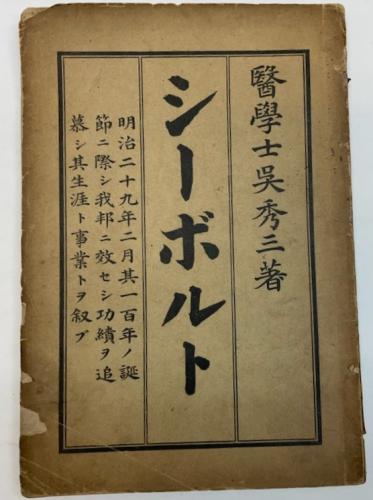 醫學士吳秀三著
シーボルト
明治二十九年二月其一百年ノ誕
節ニ際シ我邦ニ效セシ功績ヲ追
慕シ其生涯ト事業トヲ叙ブ